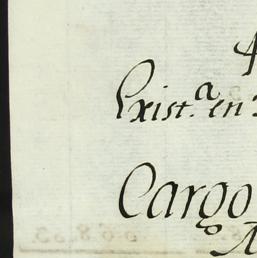 Exist.ª en
Cargo